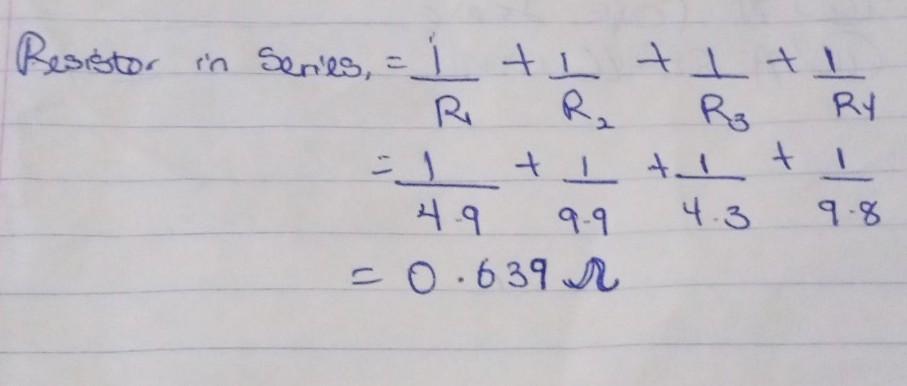 Resistor in Series, = 1/R1 + 1/R2 + 1/R3 + 1/R4
= 1/4.9 + 1/9.9 + 1/4.3 + 1/9.8
= 0.639 Ω